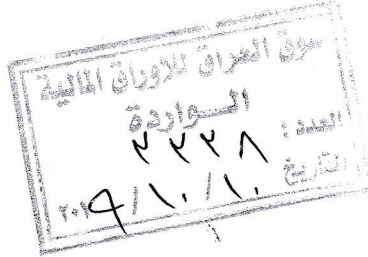 سوق العراق للاوراق المالية
الــواردة
العدد : ٢٢٣٨
التاريخ ٢٠١٩/١٠/١٠